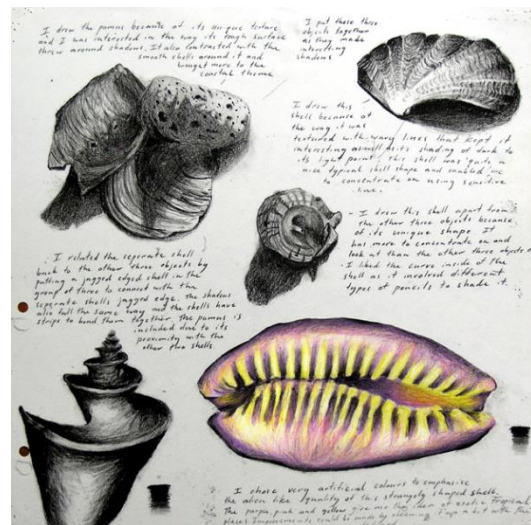 I drew the pumus because of its unique texture
and I was interested in the way its rough surface
threw around shadows. It also contrasted with the
smooth shells around it and
brought more to the
coastal theme
I put these three
objects together
as they made
interesting
shadows
I drew this
shell because of
the way it was
textured with wavy lines that kept it
interesting as well as its shading of dark to
its light point. This shell was quite a
nice typical shell shape and enabled me
to concentrate on using sensitive
line.
- I drew this shell apart from
the other three objects because
of its unique shape. It
has more to concentrate on and
look at than the other three objects
I liked the curve inside of the
shell as it involved different
types of pencils to shade it.
I related the seperate shell
back to the other three objects by
putting a jagged edged shell in the
group of three to connect with the
seperate shells jagged edge. The shadows
also fall the same way and the shells have
strips to bind them together. The pumus is
included due to its
proximity with the
other two shells
I chose very artificial colours to emphasise
the alien like quality of this strangely shaped shell.
The purple pink and yellow give me the idea of exotic Tropical
places Improvements could be made by